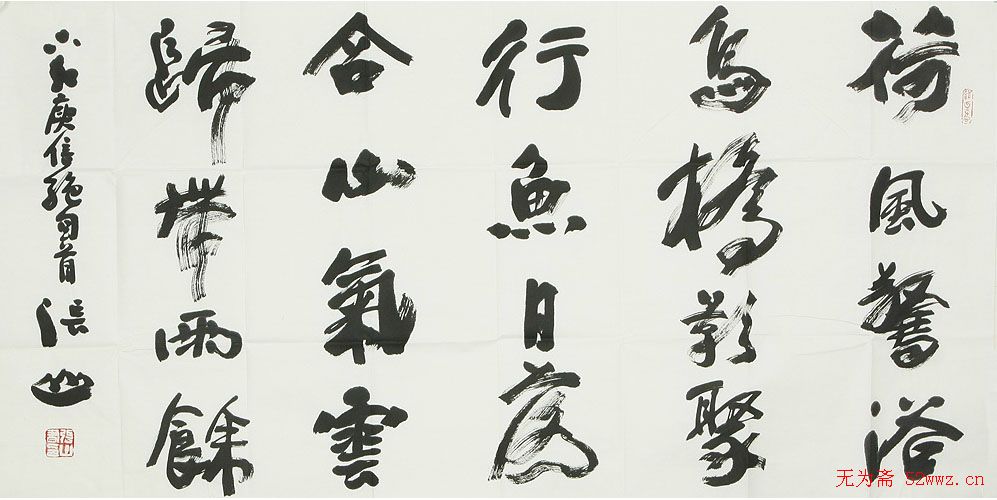 荷風驚浴
鳥橋影聚
行魚日落
含山氣雲
歸帶雨餘
庾信絕句首 張山
无为斋 52wwz.cn